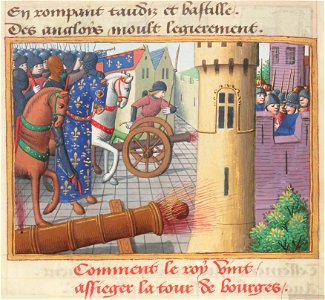 En rompant taudis et bastille.
Des anglois moult legierement.
Comment le roy vint
assieger la tour de bourges.